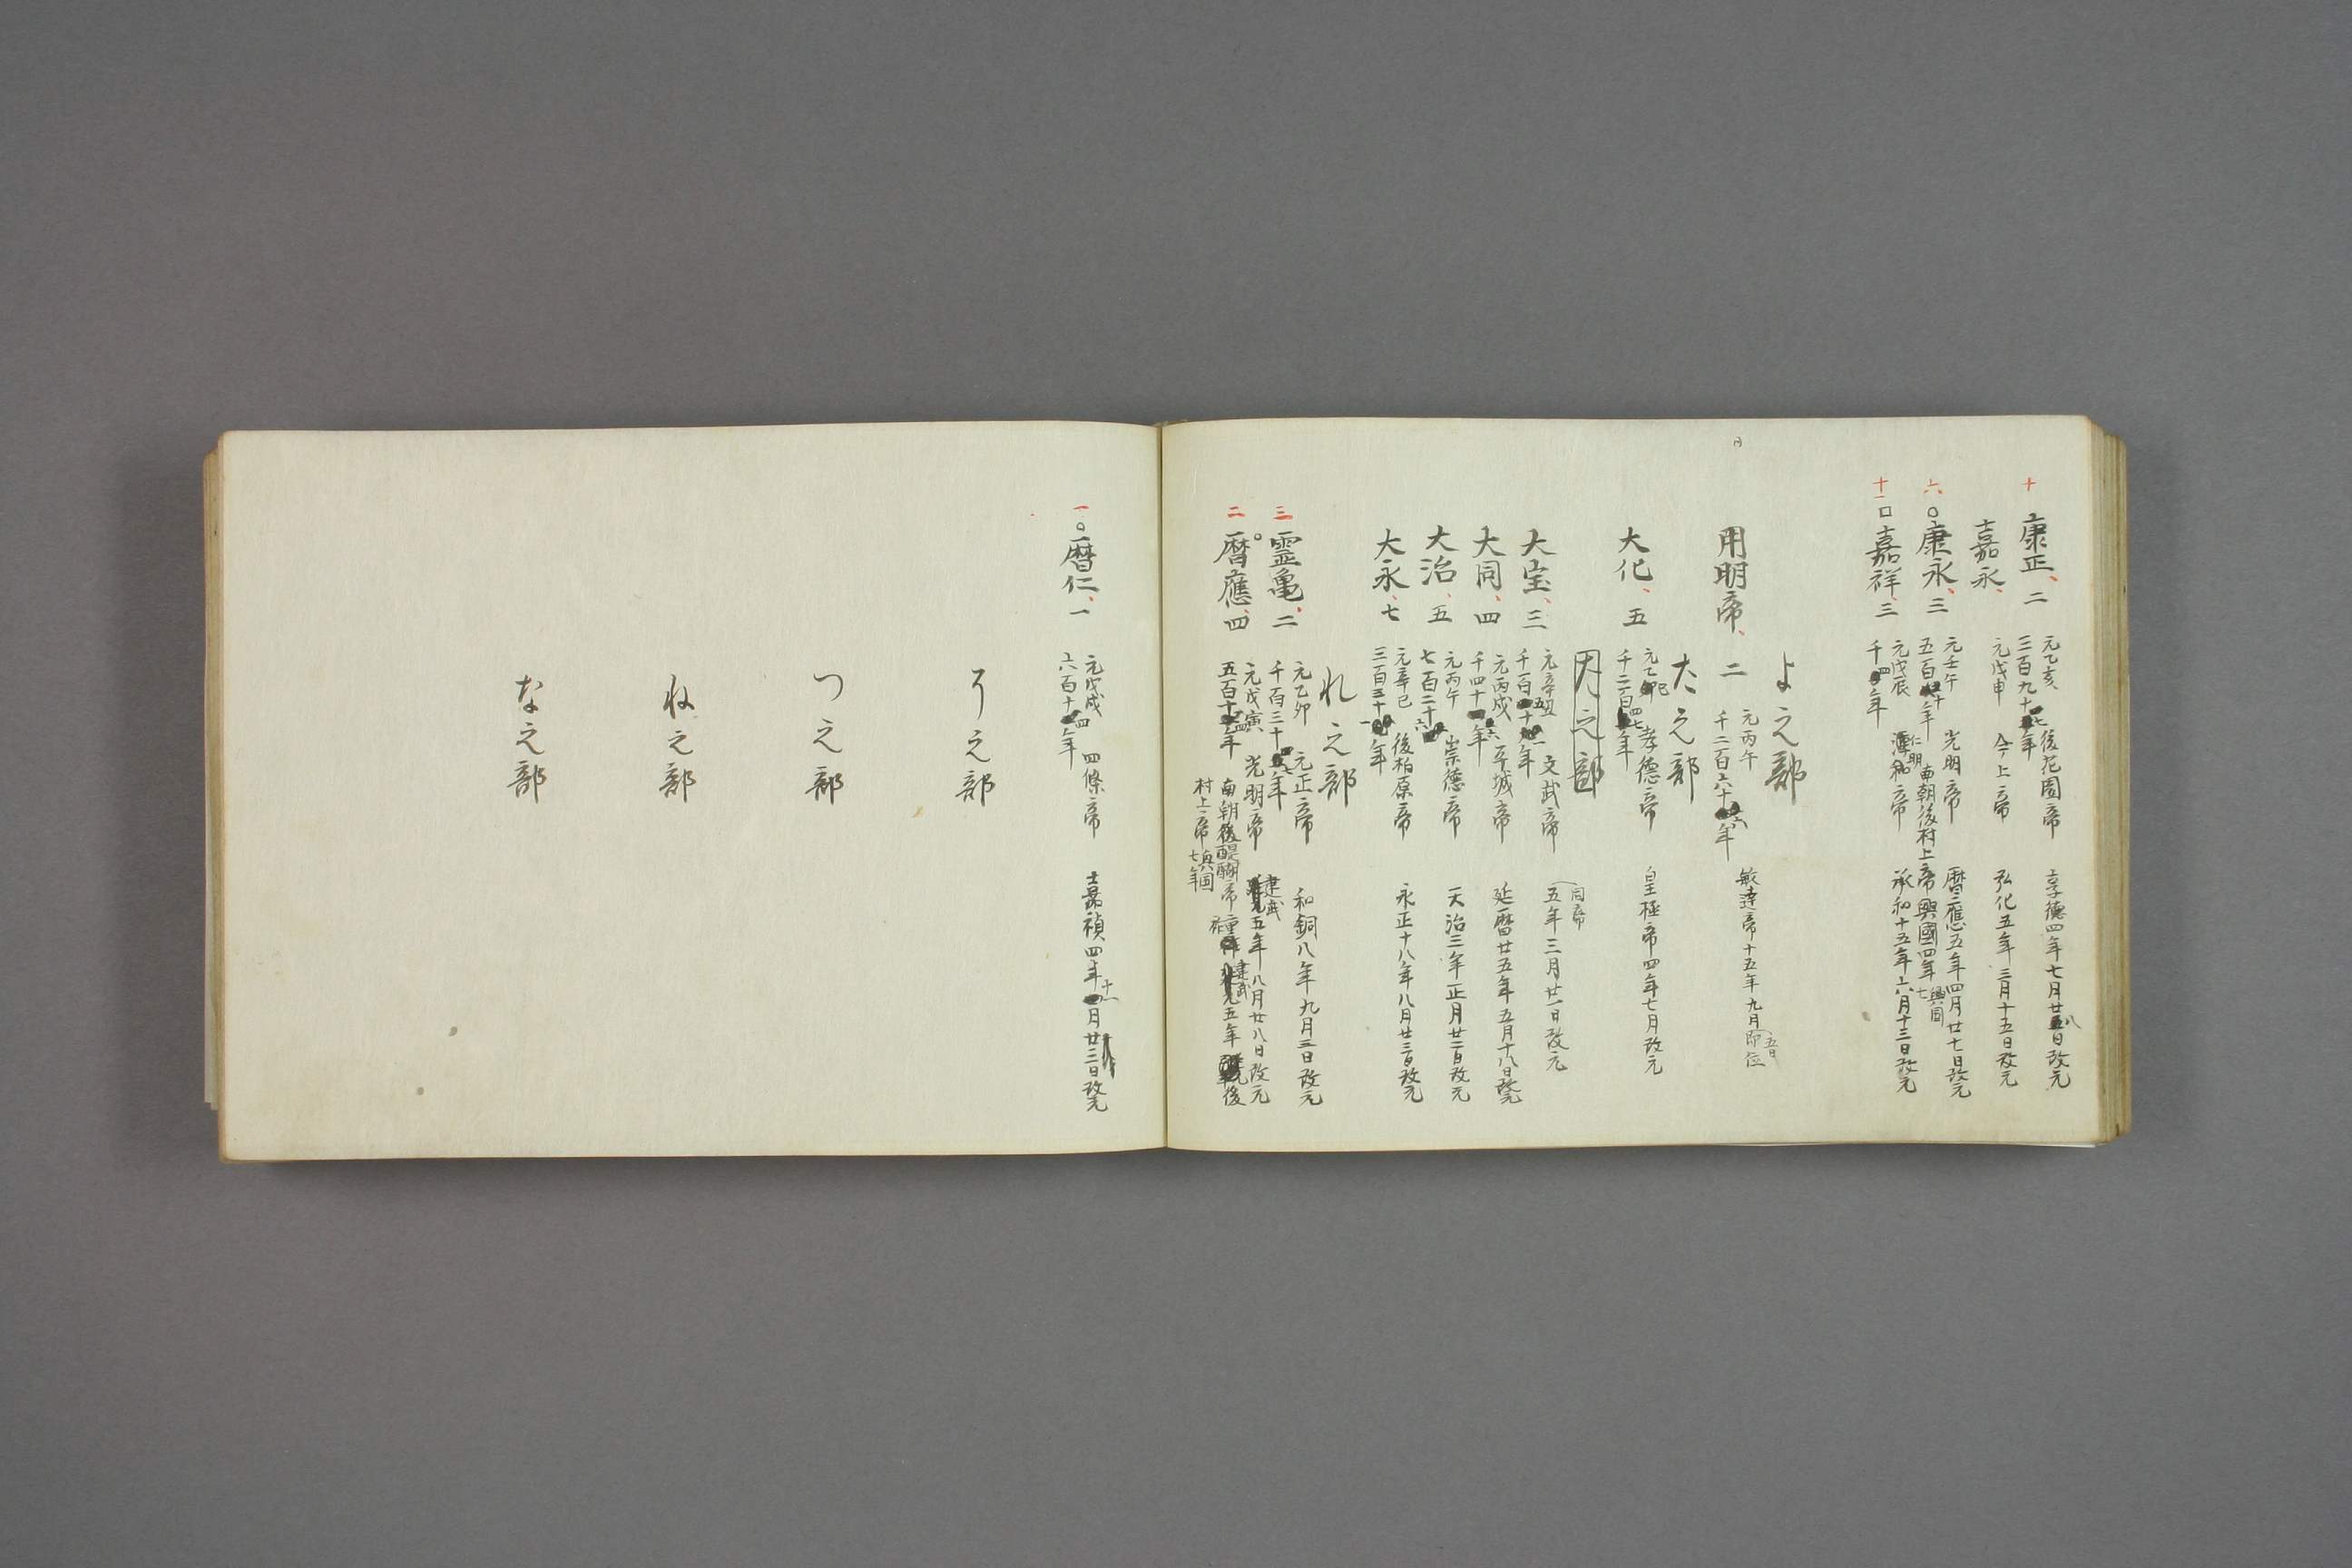 十
康正、二
元乙亥 後花園帝 享徳四年七月廿八日改元
三百九十七年
嘉永、
元戊申 今上帝 弘化五年三月十五日改元
六
○康永、三
元壬午 光明帝 暦應五年四月廿七日改元
五百十年 南朝後村上帝興國四年
興国七
十一
□嘉祥、三
元戊辰 仁明帝 承和十五年六月十三日改元
千四年
よ之部
用明帝、二
元丙午 敏達帝十五年九月五日即位
千二百六十六年
た之部
大化、五
元乙巳 孝徳帝 皇極帝四年七月改元
千二百七年
大之部
大宝、三
元辛丑 文武帝 同帝五年三月廿一日改元
千百五十一年
大同、四
元丙戌 平城帝 延暦廿五年五月十八日改元
千四十六年
大治、五
元丙午 崇徳帝 天治三年正月廿二日改元
七百二十六
大永、七
元辛巳 後柏原帝 永正十八年八月廿三日改元
三百三十一年
れ之部
三
霊亀、二
元乙卯 元正帝 和銅八年九月三日改元
千百三十七年
二
○暦應、四
元戊寅 光明帝 建武五年八月廿八日改元
五百十四年 南朝後醍醐帝 建武五年 後
村上帝興国七年
一
○暦仁、一
元戊戌 四條帝 嘉禎四年十一月廿三日改元
六百十四年
そ之部
つ之部
ね之部
な之部